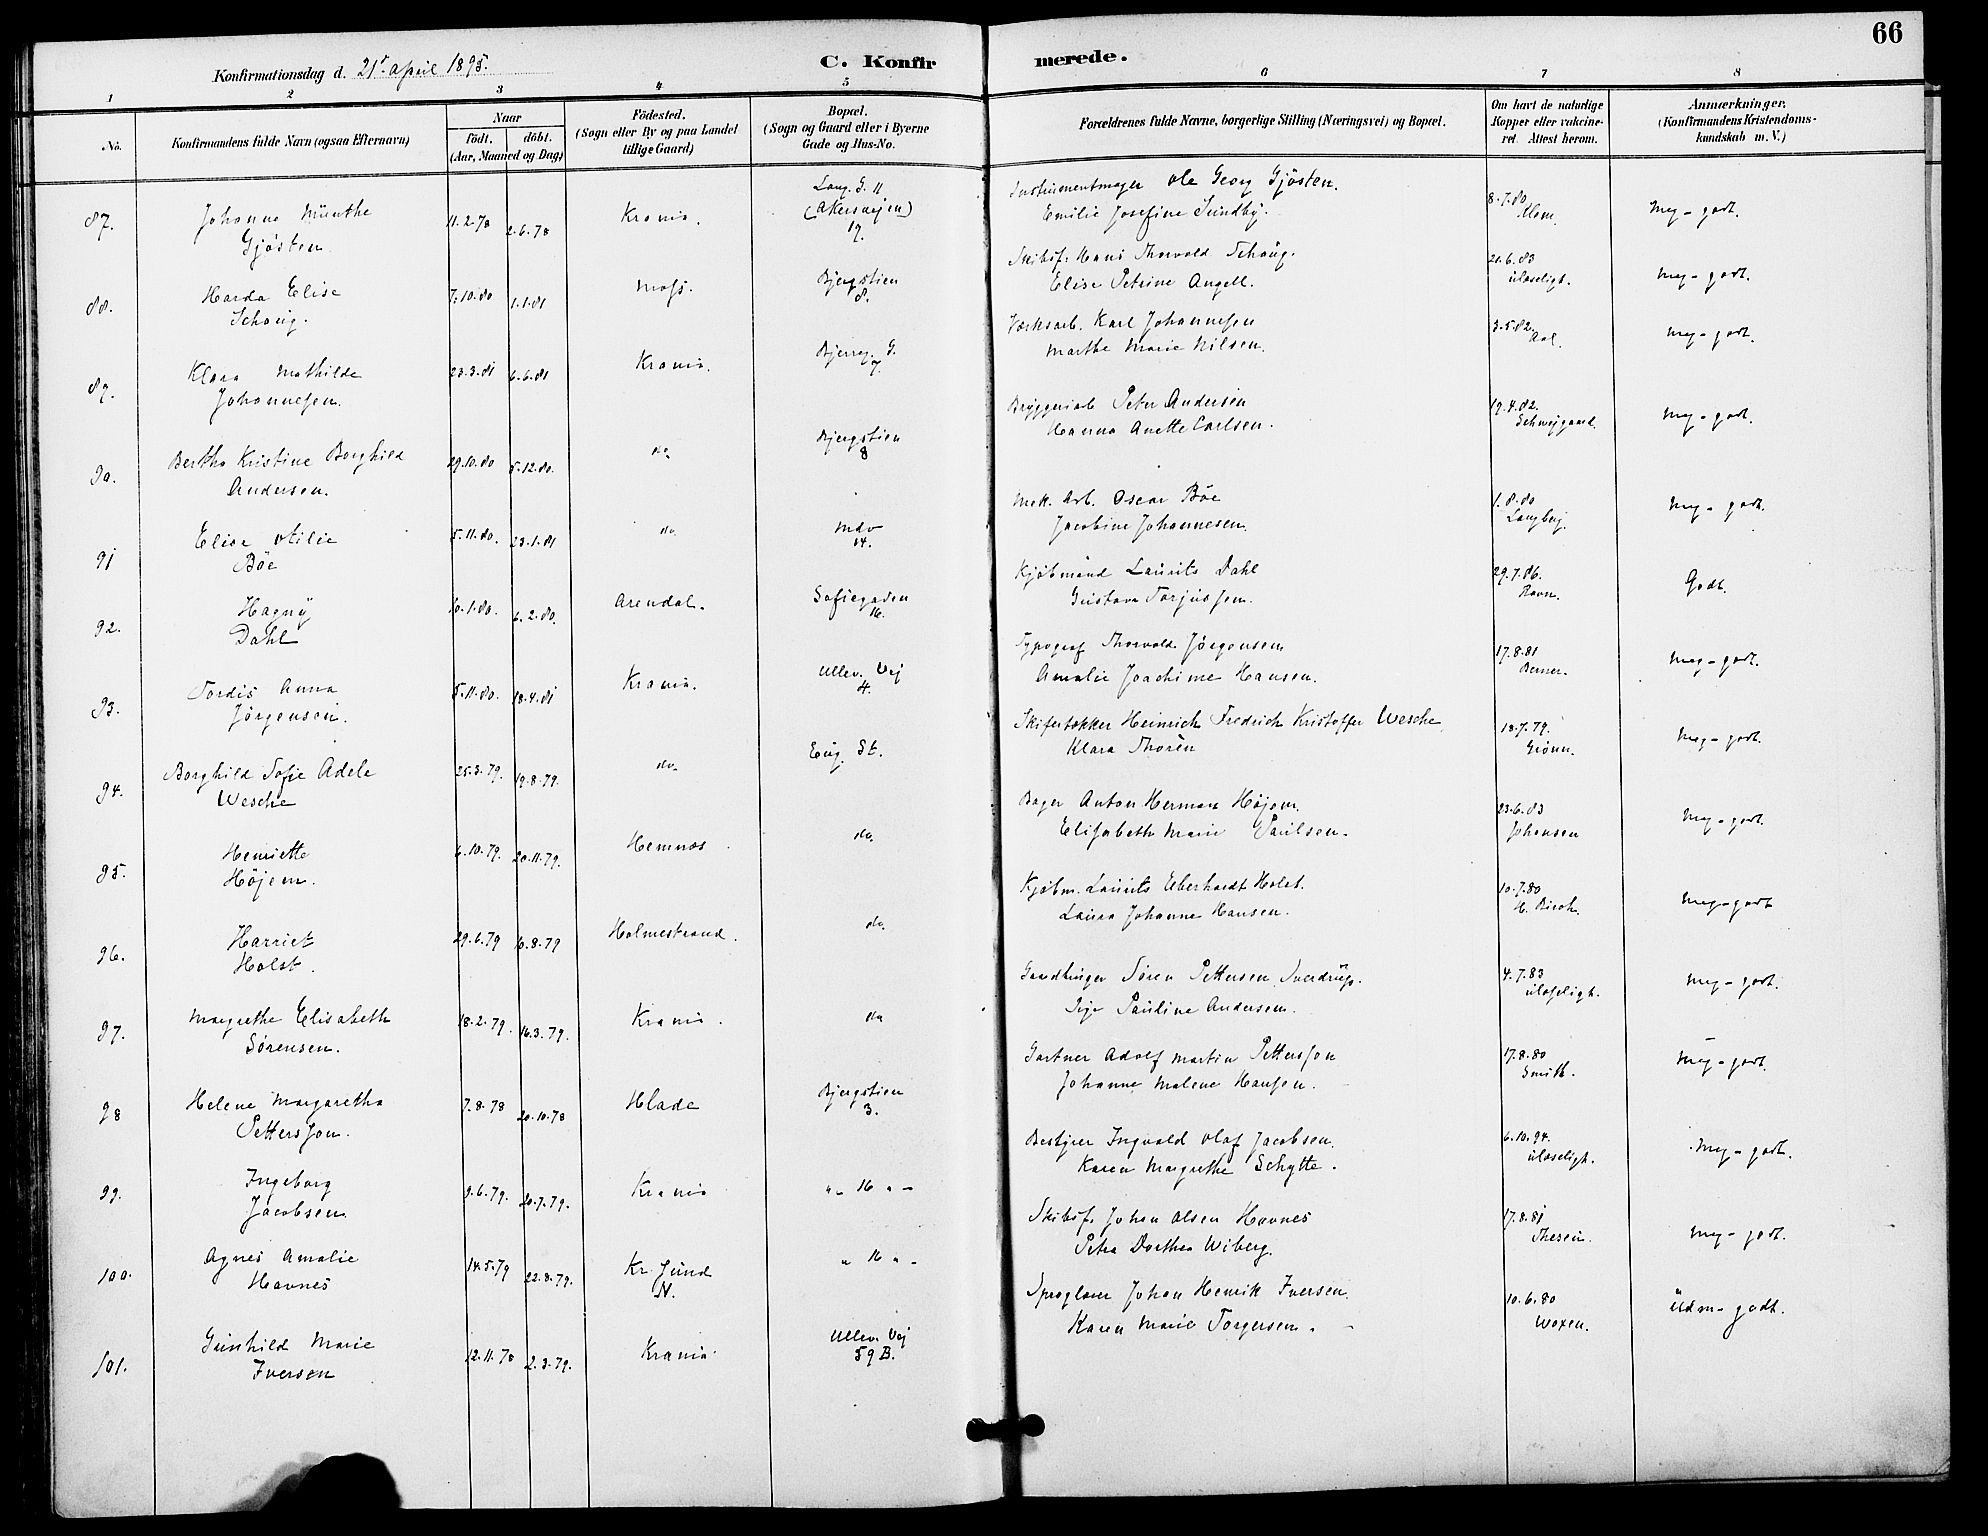 66
Konfirmationsdag d. 21' April 1895.
C. Konfirmerede.
1 2 3 4 5 6 7 8
No.
Konfirmandens fulde Navn (ogsaa Efternavn)
Naar
födt. döbt.
(Aar, Maaned og Dag)
Födested.
(Sogn eller By og paa Landet
tillige Gaard)
Bopæl.
(Sogn og Gaard eller i Byerne
Gade og Hus-No.
Forældrenes fulde Navne, borgerlige Stilling (Næringsvei) og Bopæl.
Om havt de naturlige
Kopper eller vakcine-
ret. Attest herom.
Anmærkninger.
(Konfirmandens Kristendoms-
kundskab m. V.)
87. Johanna Münthe
Gjösten 11.2.78 2.6.78 Krania. Lang. G. 11
(Akersvejen)
19.
Instrumentmager Ole Georg Gjösten.
Emilie Josefine Sundby. 8.7.80
Klem. Meg-godt.
88. Harda Elise
Schoug. 7.10.80 1.1.81 Moss. Bjergstien
8.
Skibsf. Hans Thorvald Schoug.
Elise Petrine Angell. 21.6.83
ulæseligt. Meg-godt.
89. Klara Mathilde
Johannesen. 23.3.81 6.6.81 Krania. Bjerreg. G.
7.
Værksarb. Karl Johannesen
Marthe Marie Nilsen. 3.5.82.
Aal. Meg-godt.
90. Bertha Kristine Borghild
Andersen. 29.10.80 5.12.80. do. Bjergstien
8
Bryggeriarb Peter Andersen
Hanna Anette Carlsen. 19.4.82.
Schweigaard. Meg-godt.
91 Elise Otilie
Böe 5.11.80. 23.1.81 do. Mdv
14.
Mek. Arb. Oscar Böe
Jacobine Johannesen. 1.8.80
Langberg. Meg-godt.
92. Hagny
Dahl 10.1.80. 6.2.80. Arendal. Sofiegaden
16.
Kjöbmand Laurits Dahl
Gustava Torjussen. 29.7.86.
Ravn. Godt.
93. Tordis Anna
Jörgensen. 5.11.80. 18.4.81 Krania. Ullev. Vej
4.
Typograf Thorvald Jörgensen
Amalie Joachime Hansen. 17.8.81
Berner. Meg-godt.
94. Borghild Sofie Adele
Wesche 25.3.79. 19.8.79. do. Eug. St.
Skifertækker Heinrich Fredrich Kristoffer Wesche
Klara Thorén 18.7.79.
Grönn. Meg-godt.
95. Henriette
Höjem. 6.10.79. 20.11.79. Hemnæs. do.
Bager Anton Herman Höjem.
Elisabeth Marie Paulsen. 23.6.83
Johansen Meg-godt.
96. Harriet
Holst. 29.6.79 10.8.79 Holmestrand. do.
Kjöbm. Laurits Eberhardt Holst.
Laura Johanne Hansen. 10.7.80
H. Birch. Meg-godt
97. Margrethe Elisabeth
Sörensen. 18.2.79. 16.3.79. Krania. do
Sören Pettersen Sverdrup.
Pauline Andersen. 4.7.83
ulæseligt. Meg-godt.
98 Helene Margaretha
Pettersson. 7.8.78 20.10.78 Hlade Bjergstien
3.
Gartner Adolf Martin Pettersson
Johanne Malene Hansen. 17.8.80
Smith. Meg-godt.
99. Ingeborg
Jacobsen. 9.6.79. 20.7.79. Krania " 16 "
Bestyrer Ingvald Olaf Jacobsen.
Karen Margrethe Schytte. 6.10.94.
ulæseligt. Meg-godt.
100. Agnes Amalie
Havnes 14.5.79 22.8.79. Kr. Sund
N. " 16 "
Skibsf. Johan Olsen Havnes
Petra Dorthea Wiberg. 17.8.81
Thesen. Meg-godt.
101. Gunhild Marie
Iversen 12.11.78 2.3.79. Krania Ullev. Vej
59 B.
Sproglærer Johan Henrik Iversen.
Karen Marie Torgersen. 10.6.80
Woxen. Udm-godt.